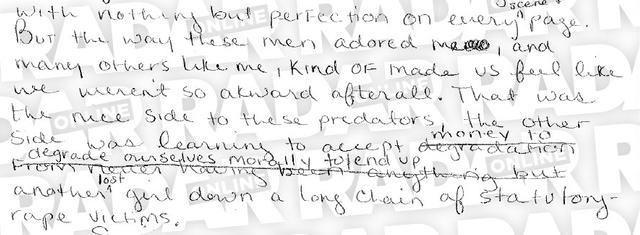 scene
with nothing but perfection on every page.
But the way these men adored me, and
many others like me, kind of made us feel like
we weren't so akward afterall. That was
the nice side to these predators, the other
side was learning to accept degradation money to
degrade ourselves morally to end up
from never having been anything but
another lost girl down a long chain of statutory-
rape victims.
RADAR ONLINE